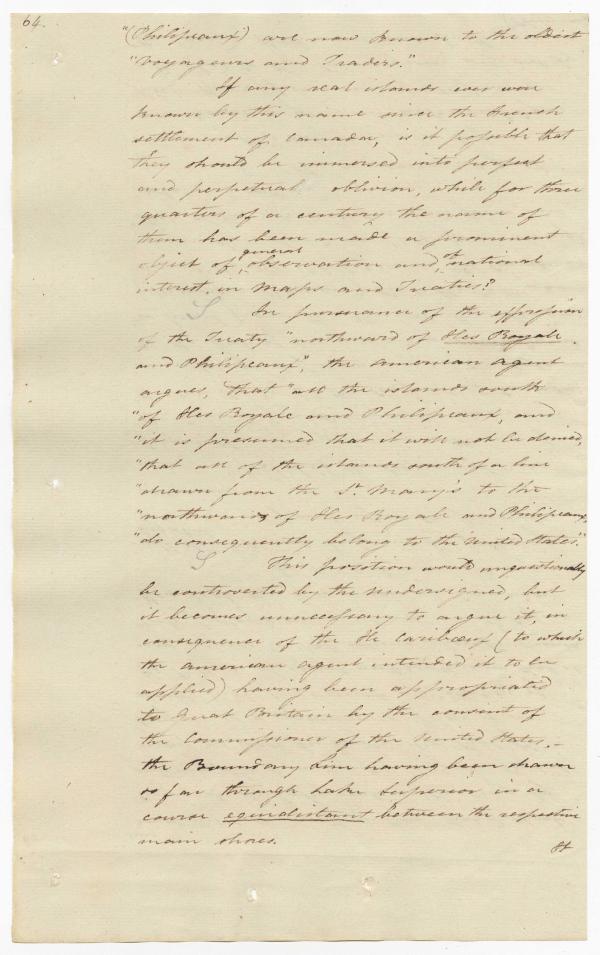 64.
"(Philipeaux) are now known to the oldest
"Voyageurs and Traders."
If any real islands ever were
known by this name since the French
settlement of Canada, is it possible that
they should be immersed into perfect
and perpetual oblivion, while for three
quarters of a century the name of
them has been made a prominent
object of general observation and of national
interest, in Maps and Treaties?
In pursuance of the expression
of the Treaty "northward of Iles Royale
and Philipeaux", the american agent
argues, that "all the islands south
"of Iles Royale and Philipeaux, and
"it is presumed that it will not be denied,
"that all of the islands south of a line
"drawn from the St. Mary's to the
"northward of Iles Royale and Philipeaux,
"do consequently belong to the United States."
This position would unquestionably
be controverted by the undersigned, but
it becomes unnecessary to argue it, in
consequence of the Ile Cariboeuf (to which
the american agent intended it to be
applied) having been appropriated
to Great Britain by the consent of
the Commissioner of the United States,–
the Boundary Line having been drawn
so far through Lake Superior in a
course equidistant between the respective
main shores.
It